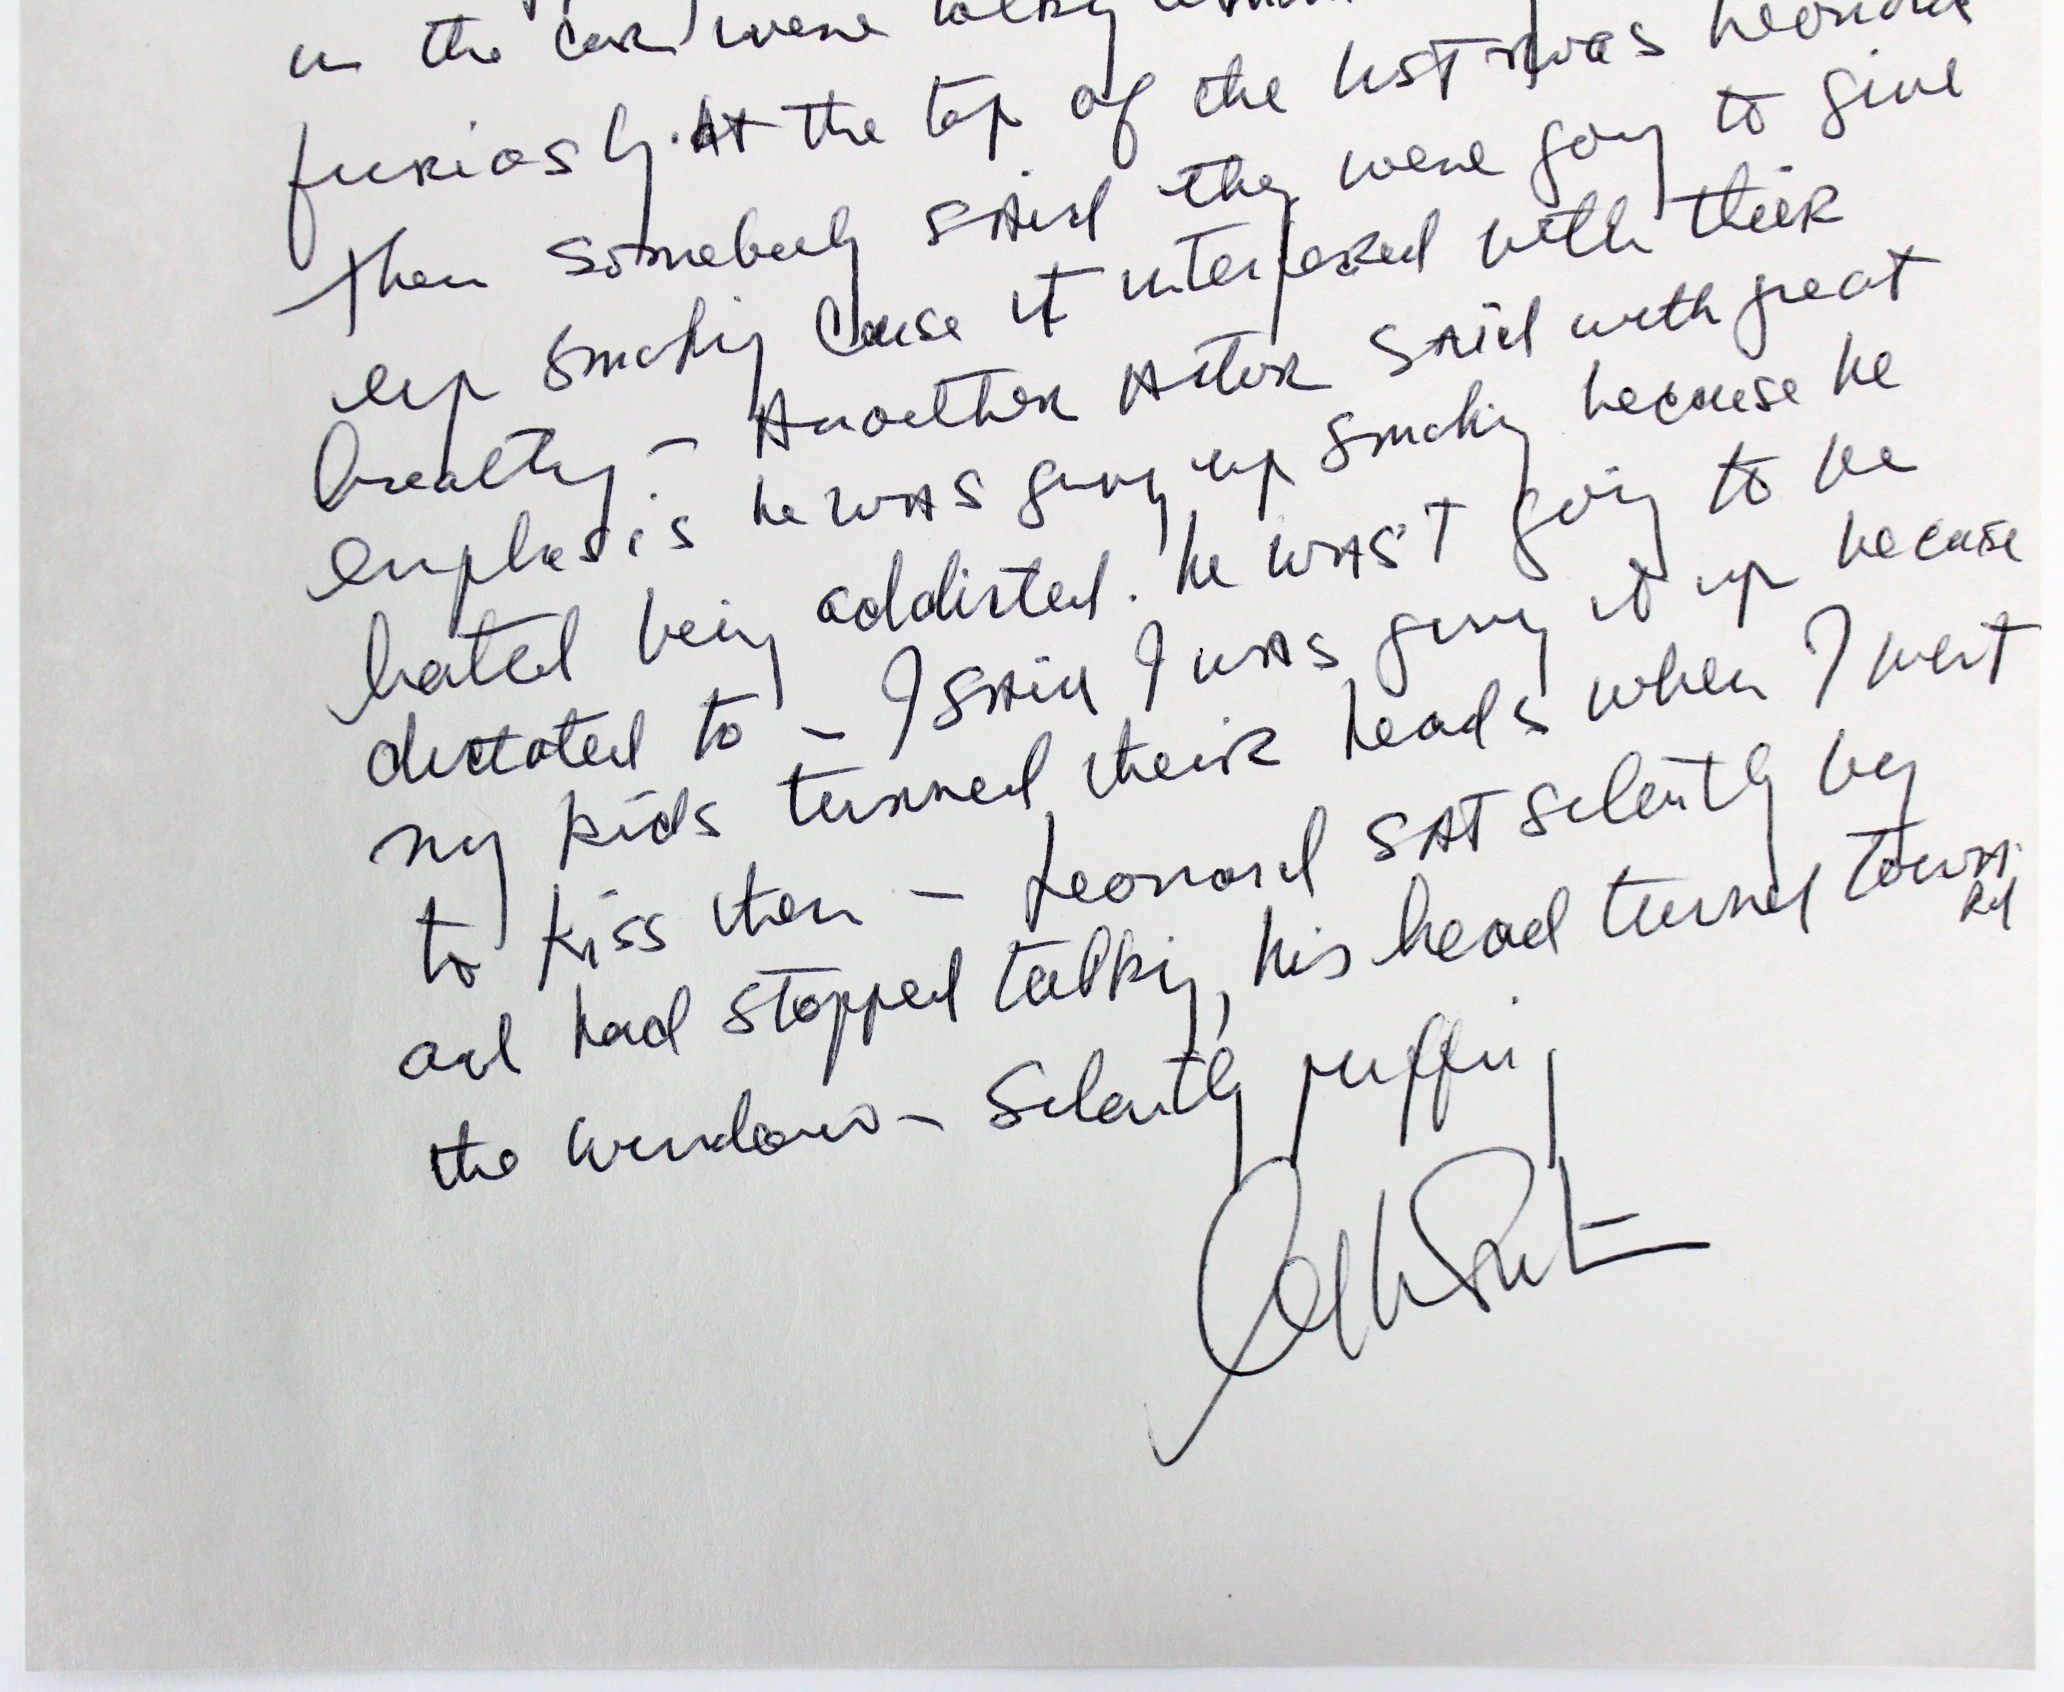 in the car) were talking
furiosly. At the top of the list was Leonard
Then somebody said they were going to give
up smoking cause it interfered with their
breathing. – Another Actor said with great
emphasis he was giving up smoking because he
hated being addicted. he was't going to be
dictated to – I said I was giving it up because
my kids turned their heads when I went
to kiss them – Leonard SAT silently by
and had stopped talking, his head turned toward
the window – Silently puffing